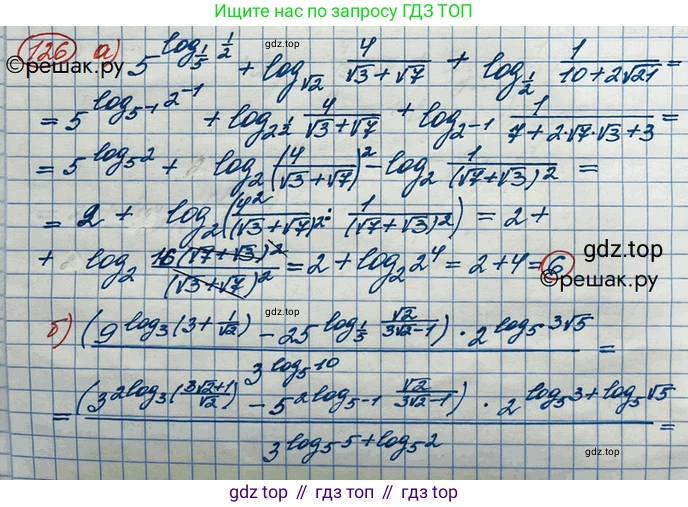 Ищите нас по запросу ГДЗ ТОП
126 а) 5^{log_{1/5} 1/2} + log_{√2} 4/(√3+√7) + log_{1/2} 1/(10+2√21) =
©решак.ру
gdz.top
©решак.ру
= 5^{log_{5^{-1}} 2^{-1}} + log_{2^{1/2}} 4/(√3+√7) + log_{2^{-1}} 1/(7+2·√7·√3+3) =
= 5^{log_5 2} + log_2 (4/(√3+√7))^2 - log_2 1/(√7+√3)^2 =
= 2 + log_2 (4^2/(√3+√7)^2 : 1/(√7+√3)^2) = 2 +
+ log_2 16(√7+√3)^2/(√3+√7)^2 = 2 + log_2 2^4 = 2+4 = 6
gdz.top
©решак.ру
б) (9^{log_3(3+1/√2)} - 25^{log_{1/5} √2/(3√2-1)}) · 2^{log_5 3√5} / 3^{log_5 10} =
= (3^{2log_3((3√2+1)/√2)} - 5^{2log_{5^{-1}} √2/(3√2-1)}) · 2^{log_5 3+log_5 √5} / 3^{log_5 5+log_5 2} =
gdz.top
gdz.top // гдз.top // гдз топ